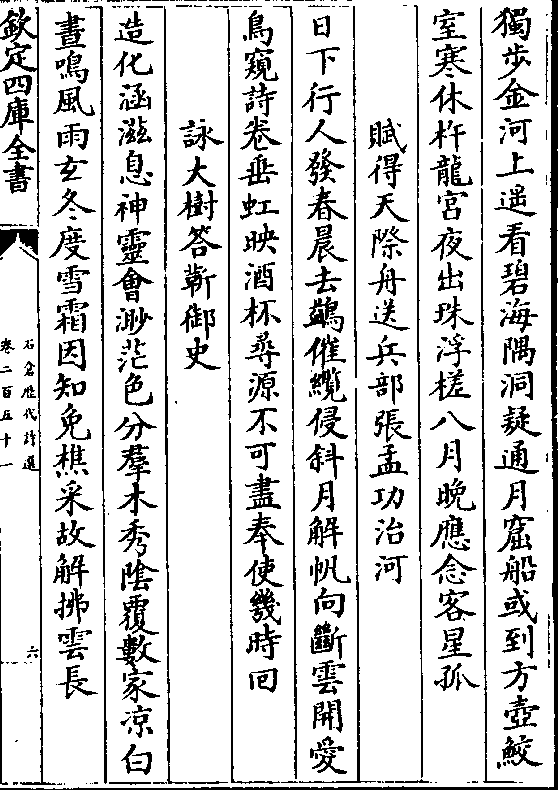 獨步金河上遥看碧海隅洞疑通月窟船或到方壺鮫
室寒休杵龍宮夜出珠浮槎八月晚應念客星孤
賦得天際舟送兵部張孟功治河
日下行人發春晨去鷁催纜侵斜月解帆向斷雲開愛
鳥窺詩卷垂虹映酒杯尋源不可盡奉使幾時回
詠大樹答靳御史
造化涵滋息神靈會渺茫色分羣木秀陰覆數家凉白
晝鳴風雨玄冬度雪霜因知免樵采故解拂雲長
欽定四庫全書
石倉歷代詩選
卷二百五十一
六